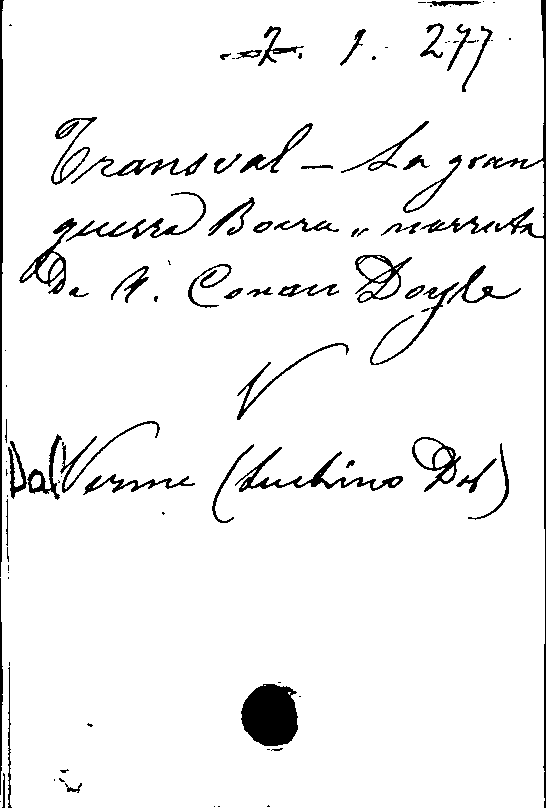 7. 1. 277
Transval — La gran
guerra Boera „ narrata
Da A. Conan Doyle
V
Dal Verme (Luchino Dal)